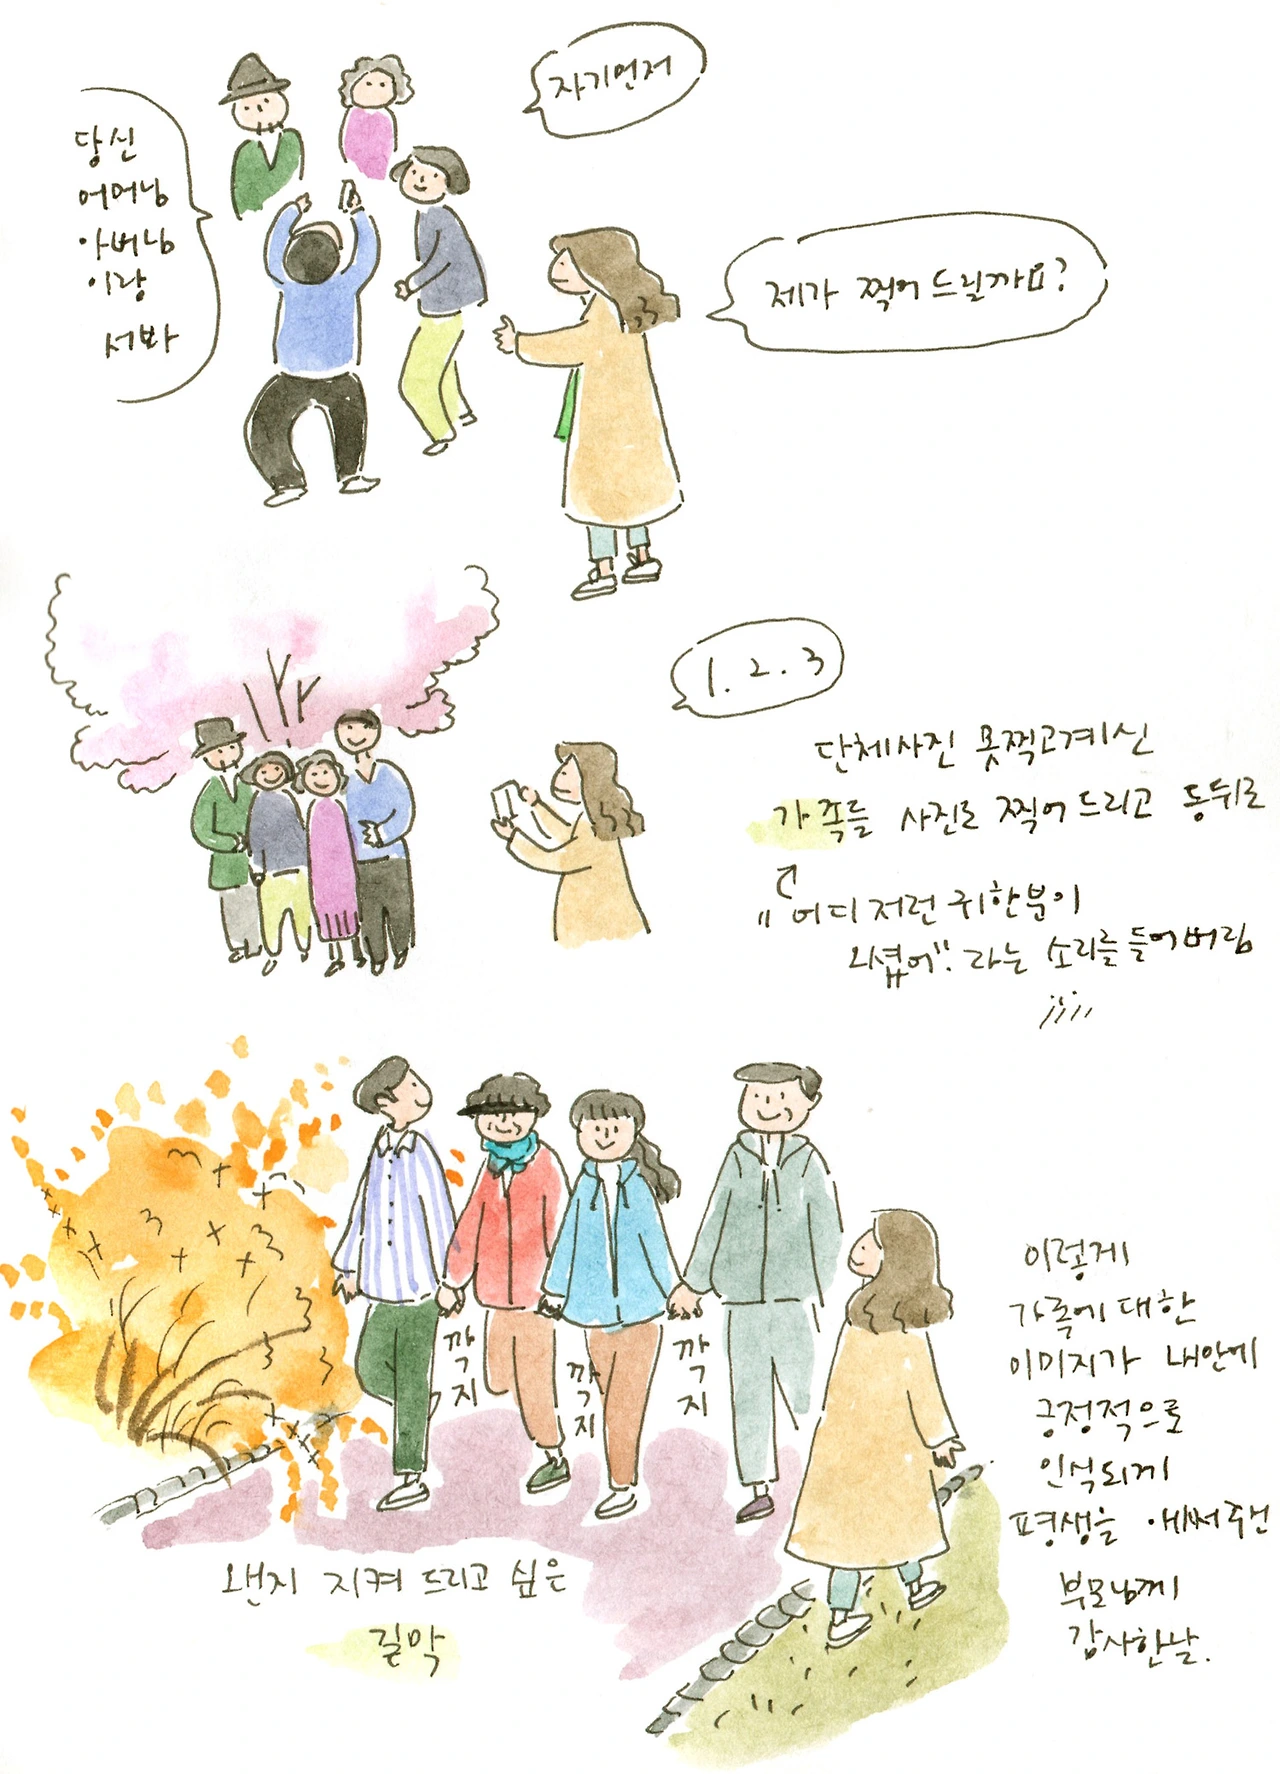 자기먼저
당신
어머님
아버님
이랑
서봐
제가 찍어 드릴까요?
1. 2. 3
단체사진 못찍고계신
가족들 사진도 찍어 드리고 등뒤로
"어디 저런 귀한분이
오셨어". 라는 소리를 들어버림
이렇게
가족에 대한
이미지가 내안에
긍정적으로
인식되게
평생을 애써주신
부모님께
감사한날.
깍지
깍지
깍지
왠지 지켜 드리고 싶은
길막